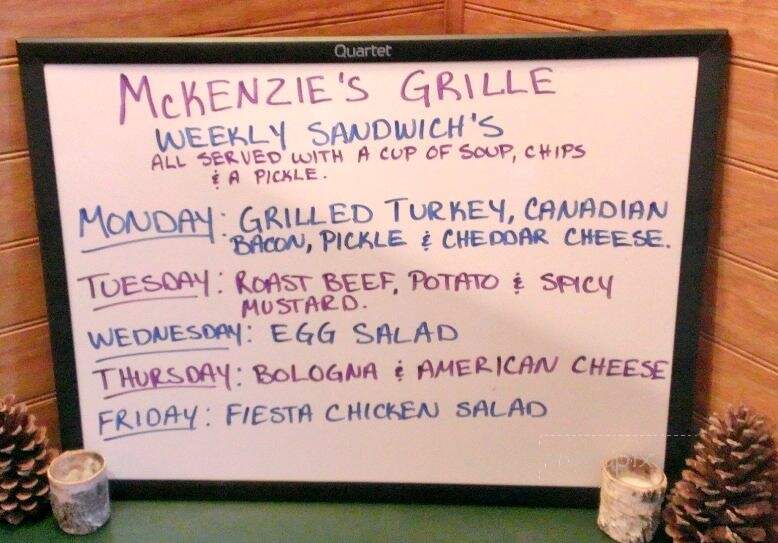 Quartet
McKENZIE'S GRILLE
WEEKLY SANDWICH'S
ALL SERVED WITH A CUP OF SOUP, CHIPS
& A PICKLE.
MONDAY: GRILLED TURKEY, CANADIAN
BACON, PICKLE & CHEDDAR CHEESE.
TUESDAY: ROAST BEEF, POTATO & SPICY
MUSTARD.
WEDNESDAY: EGG SALAD
THURSDAY: BOLOGNA & AMERICAN CHEESE
FRIDAY: FIESTA CHICKEN SALAD